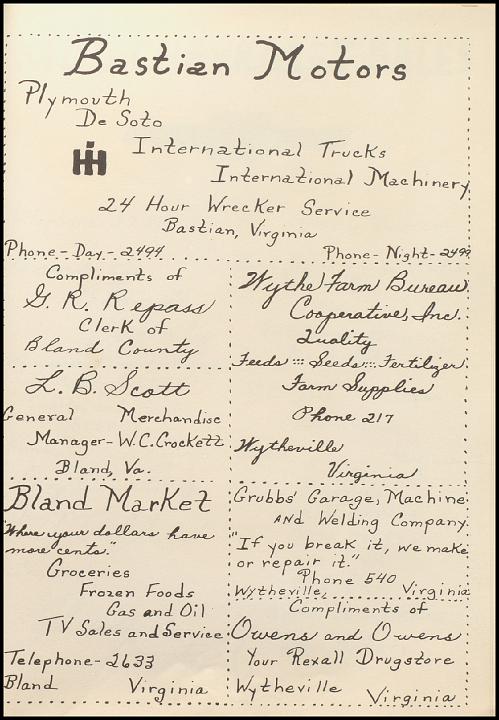 Bastian Motors
Plymouth
De Soto
IH
International Trucks
International Machinery
24 Hour Wrecker Service
Bastian, Virginia
Phone-Day-2494 Phone-Night-2499
Compliments of
G. R. Repass
Clerk of
Bland County
L. B. Scott
General Merchandise
Manager-W.C. Crockett
Bland, Va.
Bland Market
"Where your dollars have
more cents."
Groceries
Frozen Foods
Gas and Oil
TV Sales and Service
Telephone-2633
Bland Virginia
Wythe Farm Bureau
Cooperative, Inc.
Quality
Feeds ::: Seeds ::: Fertilizer
Farm Supplies
Phone 217
Wytheville
Virginia
Grubbs' Garage, Machine
And Welding Company
"If you break it, we make
or repair it."
Phone 540
Wytheville, Virginia
Compliments of
Owens and Owens
Your Rexall Drugstore
Wytheville
Virginia